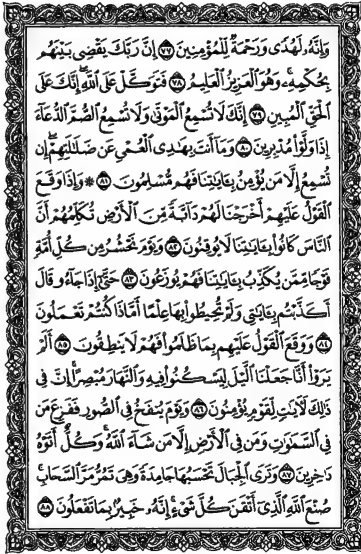 وَإِنَّهُۥ لَهُدًى وَرَحْمَةٌ لِّلْمُؤْمِنِينَ ٧٧ إِنَّ رَبَّكَ يَقْضِى بَيْنَهُم
بِحُكْمِهِۦ ۚ وَهُوَ ٱلْعَزِيزُ ٱلْعَلِيمُ ٧٨ فَتَوَكَّلْ عَلَى ٱللَّهِ ۖ إِنَّكَ عَلَى
ٱلْحَقِّ ٱلْمُبِينِ ٧٩ إِنَّكَ لَا تُسْمِعُ ٱلْمَوْتَىٰ وَلَا تُسْمِعُ ٱلصُّمَّ ٱلدُّعَآءَ
إِذَا وَلَّوْا۟ مُدْبِرِينَ ٨٠ وَمَآ أَنتَ بِهَٰدِى ٱلْعُمْىِ عَن ضَلَٰلَتِهِمْ ۖ إِن
تُسْمِعُ إِلَّا مَن يُؤْمِنُ بِـَٔايَٰتِنَا فَهُم مُّسْلِمُونَ ٨١ ۞ وَإِذَا وَقَعَ
ٱلْقَوْلُ عَلَيْهِمْ أَخْرَجْنَا لَهُمْ دَآبَّةً مِّنَ ٱلْأَرْضِ تُكَلِّمُهُمْ أَنَّ
ٱلنَّاسَ كَانُوا۟ بِـَٔايَٰتِنَا لَا يُوقِنُونَ ٨٢ وَيَوْمَ نَحْشُرُ مِن كُلِّ أُمَّةٍ
فَوْجًا مِّمَّن يُكَذِّبُ بِـَٔايَٰتِنَا فَهُمْ يُوزَعُونَ ٨٣ حَتَّىٰٓ إِذَا جَآءُو قَالَ
أَكَذَّبْتُم بِـَٔايَٰتِى وَلَمْ تُحِيطُوا۟ بِهَا عِلْمًا أَمَّاذَا كُنتُمْ تَعْمَلُونَ
٨٤ وَوَقَعَ ٱلْقَوْلُ عَلَيْهِم بِمَا ظَلَمُوا۟ فَهُمْ لَا يَنطِقُونَ ٨٥ أَلَمْ
يَرَوْا۟ أَنَّا جَعَلْنَا ٱلَّيْلَ لِيَسْكُنُوا۟ فِيهِ وَٱلنَّهَارَ مُبْصِرًا ۚ إِنَّ فِى
ذَٰلِكَ لَـَٔايَٰتٍ لِّقَوْمٍ يُؤْمِنُونَ ٨٦ وَيَوْمَ يُنفَخُ فِى ٱلصُّورِ فَفَزِعَ مَن
فِى ٱلسَّمَٰوَٰتِ وَمَن فِى ٱلْأَرْضِ إِلَّا مَن شَآءَ ٱللَّهُ ۚ وَكُلٌّ أَتَوْهُ
دَٰخِرِينَ ٨٧ وَتَرَى ٱلْجِبَالَ تَحْسَبُهَا جَامِدَةً وَهِىَ تَمُرُّ مَرَّ ٱلسَّحَابِ ۚ
صُنْعَ ٱللَّهِ ٱلَّذِىٓ أَتْقَنَ كُلَّ شَىْءٍ ۚ إِنَّهُۥ خَبِيرٌۢ بِمَا تَفْعَلُونَ ٨٨